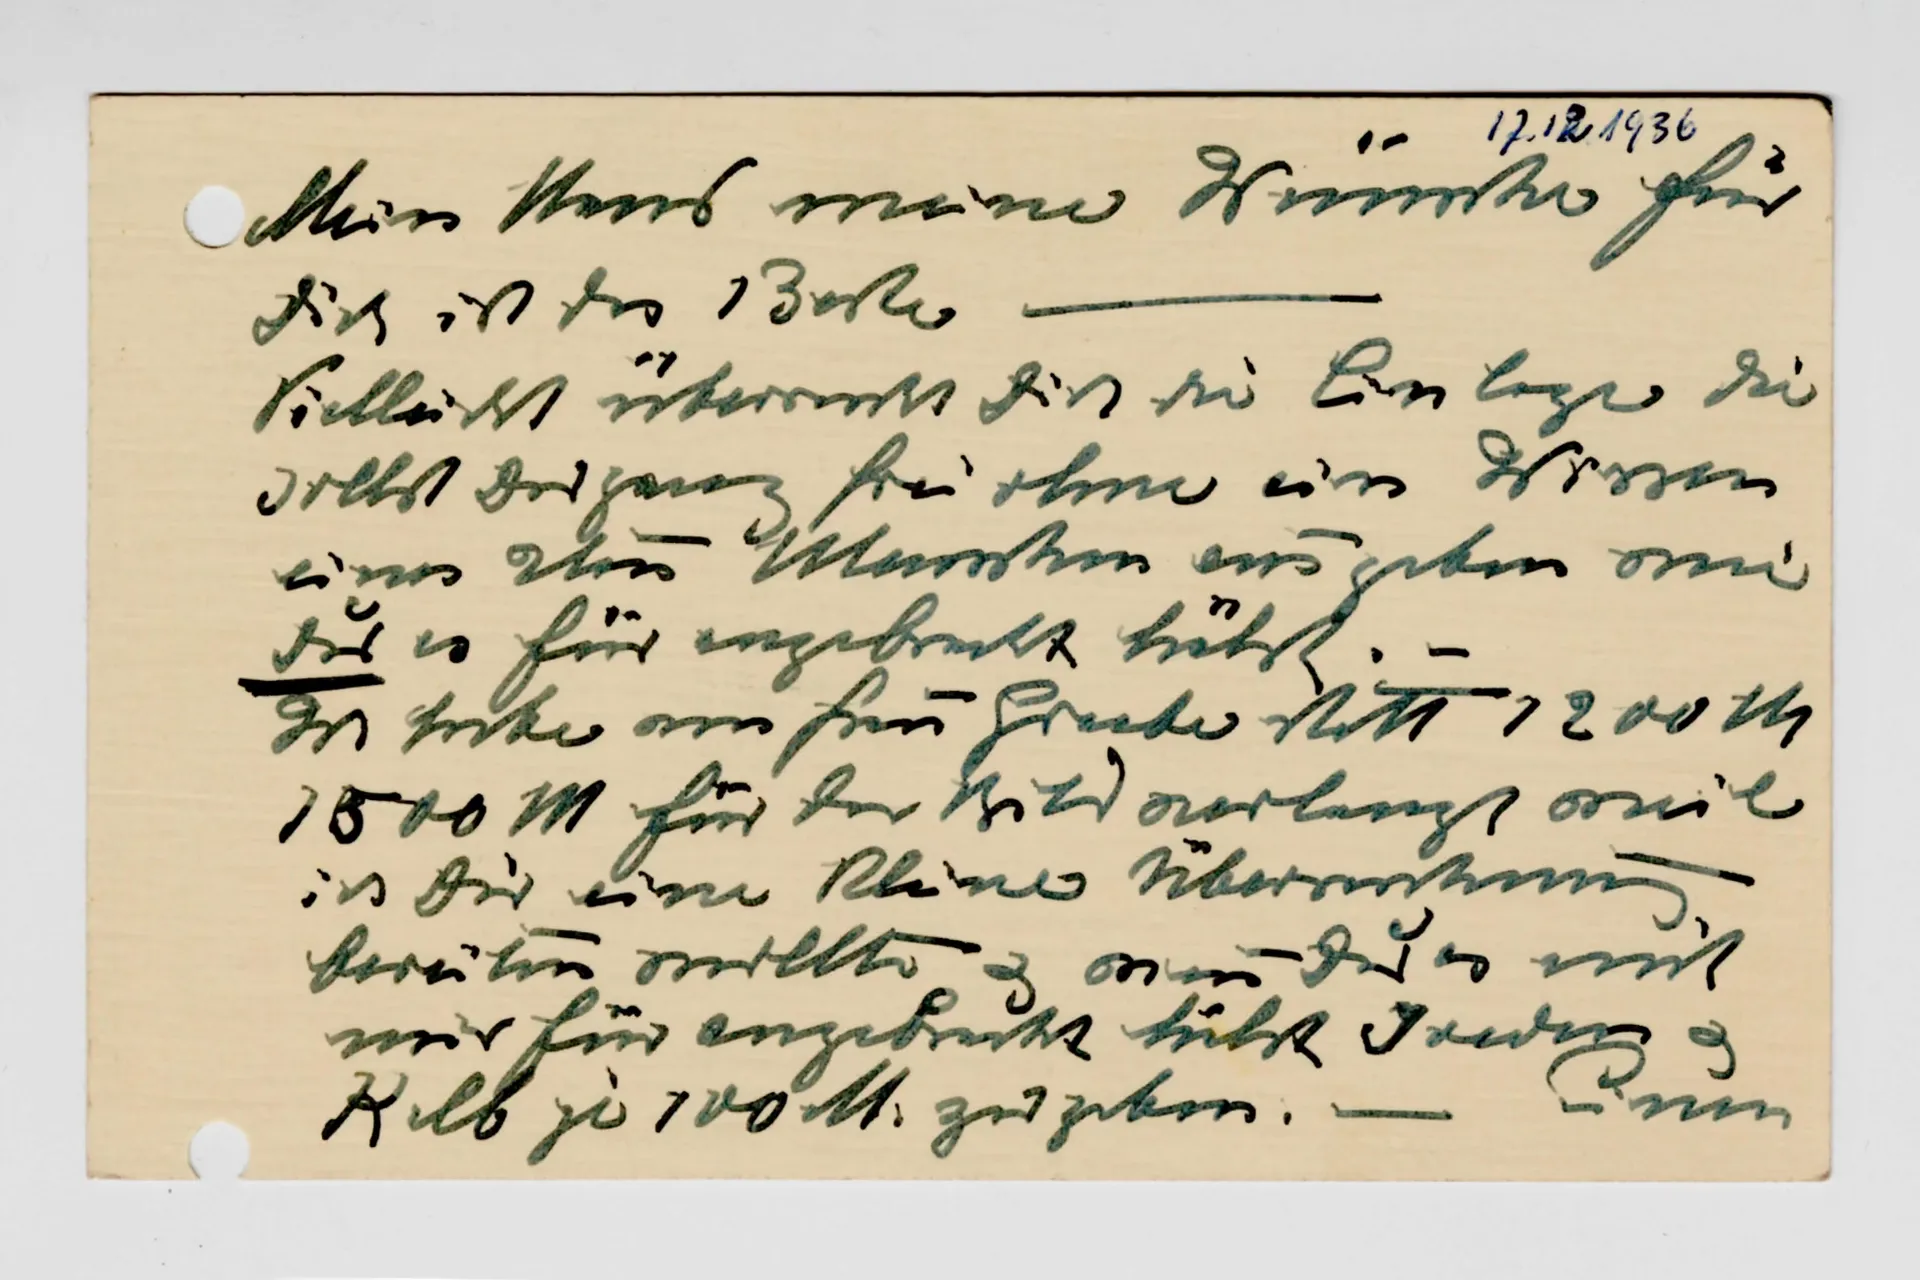 17.12.1936
Mein Hans meine Wünsche für
Dich ist das Beste —
Vielleicht überrascht Dich die Einlage die
sollst Du ganz frei ohne ein Wissen
eines Menschen ausgeben wie
Du es für angebracht hälst. —
Ich habe von Frau statt 1200 M
1500 M für das Bild verlangt weil
ich Dir eine kleine Überraschung
bereiten wollte & wenn Du es mit
mir für angebracht hälst &
je 100 M. zu geben. —